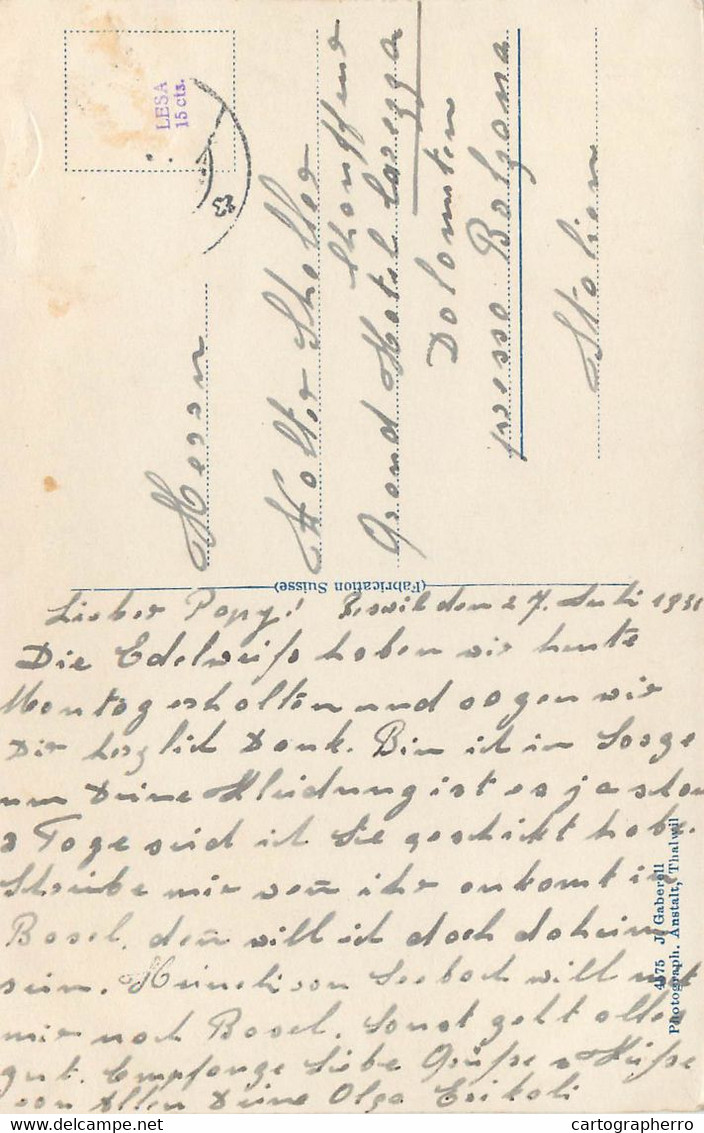 LESA
15 cts.
23
Herrn
Walter Scheller
Chauffeur
Grand Hotel Carezza
Dolomiten
presso Bolzano
Italien
(Fabrication Suisse)
Lieber Papy! den 27. Juli 1931
Die Edelweiss haben wir heute
Montag erhalten und sagen wir
Dir herzlich Dank. Bin ich in Sorge
um Deine Kleidung ist es ja schon
Tage seid ich Sie geschikt habe.
Schreibe mir wen̄ ihr ankomt in
Basel, den̄ will ich doch daheim
sein. von Seebach will mit
mir nach Basel. Sonst geht alles
gut. Empfange Liebe Grüsse u Küsse
von Allen Deine Olga
4575 J. Gaberell
Photograph. Anstalt, Thalwil
cartographerro